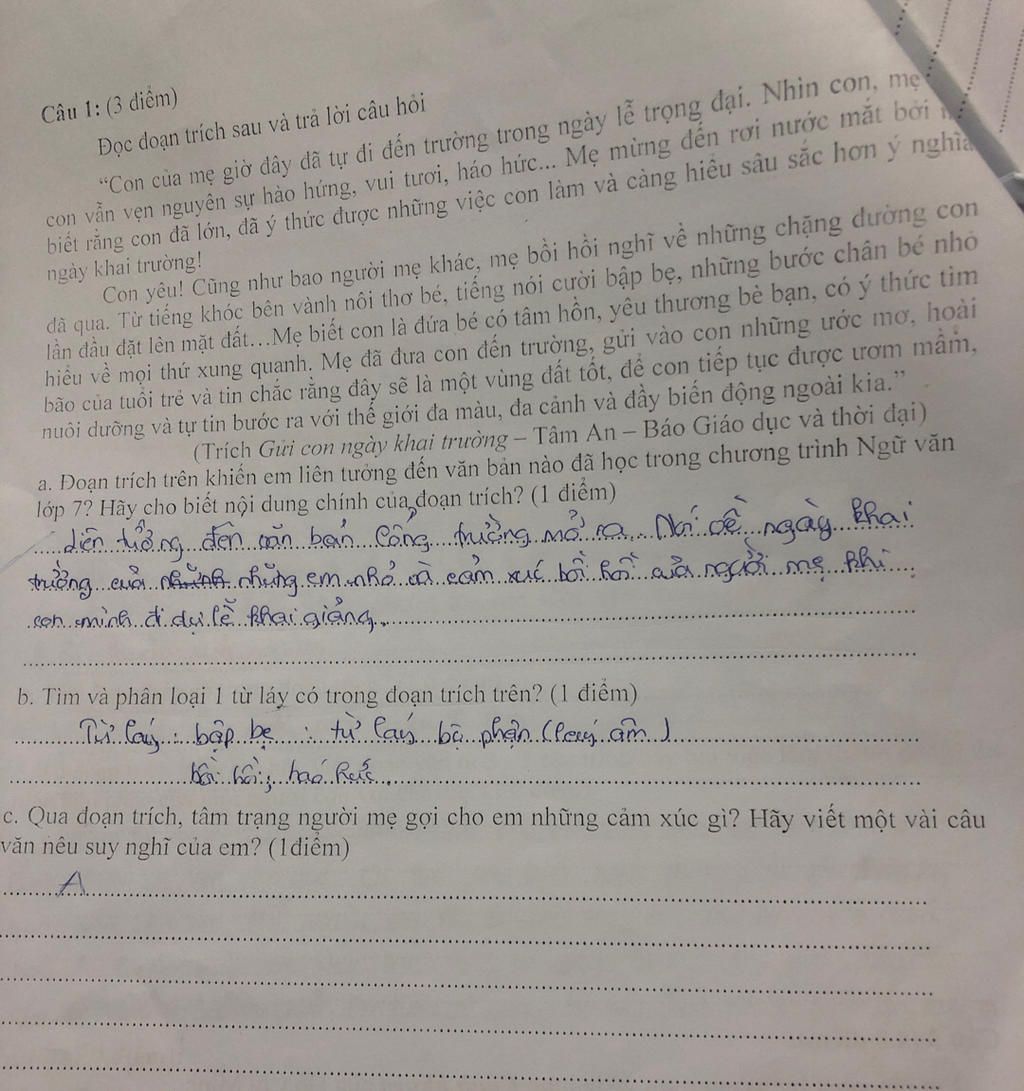 Câu 1: (3 điểm)
Đọc đoạn trích sau và trả lời câu hỏi
“Con của mẹ giờ đây đã tự đi đến trường trong ngày lễ trọng đại. Nhìn con, mẹ
con vẫn vẹn nguyên sự hào hứng, vui tươi, háo hức... Mẹ mừng đến rơi nước mắt bởi
biết rằng con đã lớn, đã ý thức được những việc con làm và càng hiểu sâu sắc hơn ý nghĩa
ngày khai trường!
Con yêu! Cũng như bao người mẹ khác, mẹ bồi hồi nghĩ về những chặng đường con
đã qua. Từ tiếng khóc bên vành nôi thơ bé, tiếng nói cười bập bẹ, những bước chân bé nhỏ
lần đầu đặt lên mặt đất…Mẹ biết con là đứa bé có tâm hồn, yêu thương bè bạn, có ý thức tìm
hiểu về mọi thứ xung quanh. Mẹ đã đưa con đến trường, gửi vào con những ước mơ, hoài
bão của tuổi trẻ và tin chắc rằng đây sẽ là một vùng đất tốt, để con tiếp tục được ươm mầm,
nuôi dưỡng và tự tin bước ra với thế giới đa màu, đa cảnh và đầy biến động ngoài kia.”
(Trích Gửi con ngày khai trường – Tâm An – Báo Giáo dục và thời đại)
a. Đoạn trích trên khiến em liên tưởng đến văn bản nào đã học trong chương trình Ngữ văn
lớp 7? Hãy cho biết nội dung chính của đoạn trích? (1 điểm)
liên tưởng đến văn bản Cổng trường mở ra. Nói về ngày khai
trường của những em nhỏ và cảm xúc bồi hồi của người mẹ khi
con mình đi dự lễ khai giảng.
b. Tìm và phân loại 1 từ láy có trong đoạn trích trên? (1 điểm)
Từ láy : bập bẹ : từ láy bộ phận (láy âm)
bồi hồi, háo hức
c. Qua đoạn trích, tâm trạng người mẹ gợi cho em những cảm xúc gì? Hãy viết một vài câu
văn nêu suy nghĩ của em? (1điểm)
A